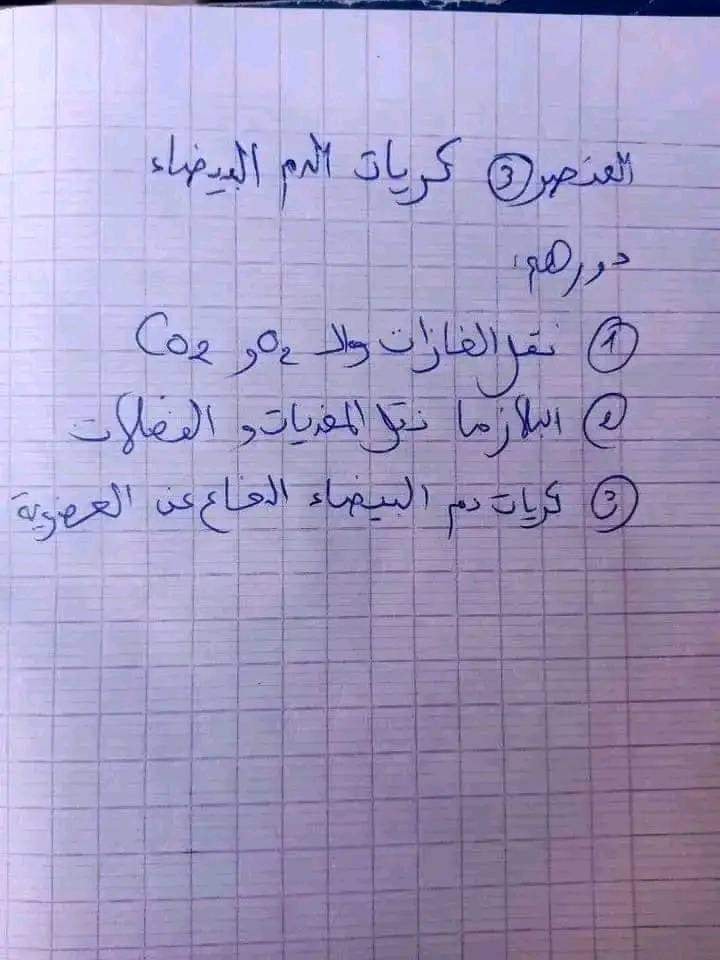 العنصر ③ كريات الدم البيضاء
دورهم:
① نقل الغازات ولا O2 و CO2
② البلازما نقل المغذيات و الفضلات
③ كريات دم البيضاء الدفاع عن العضوية